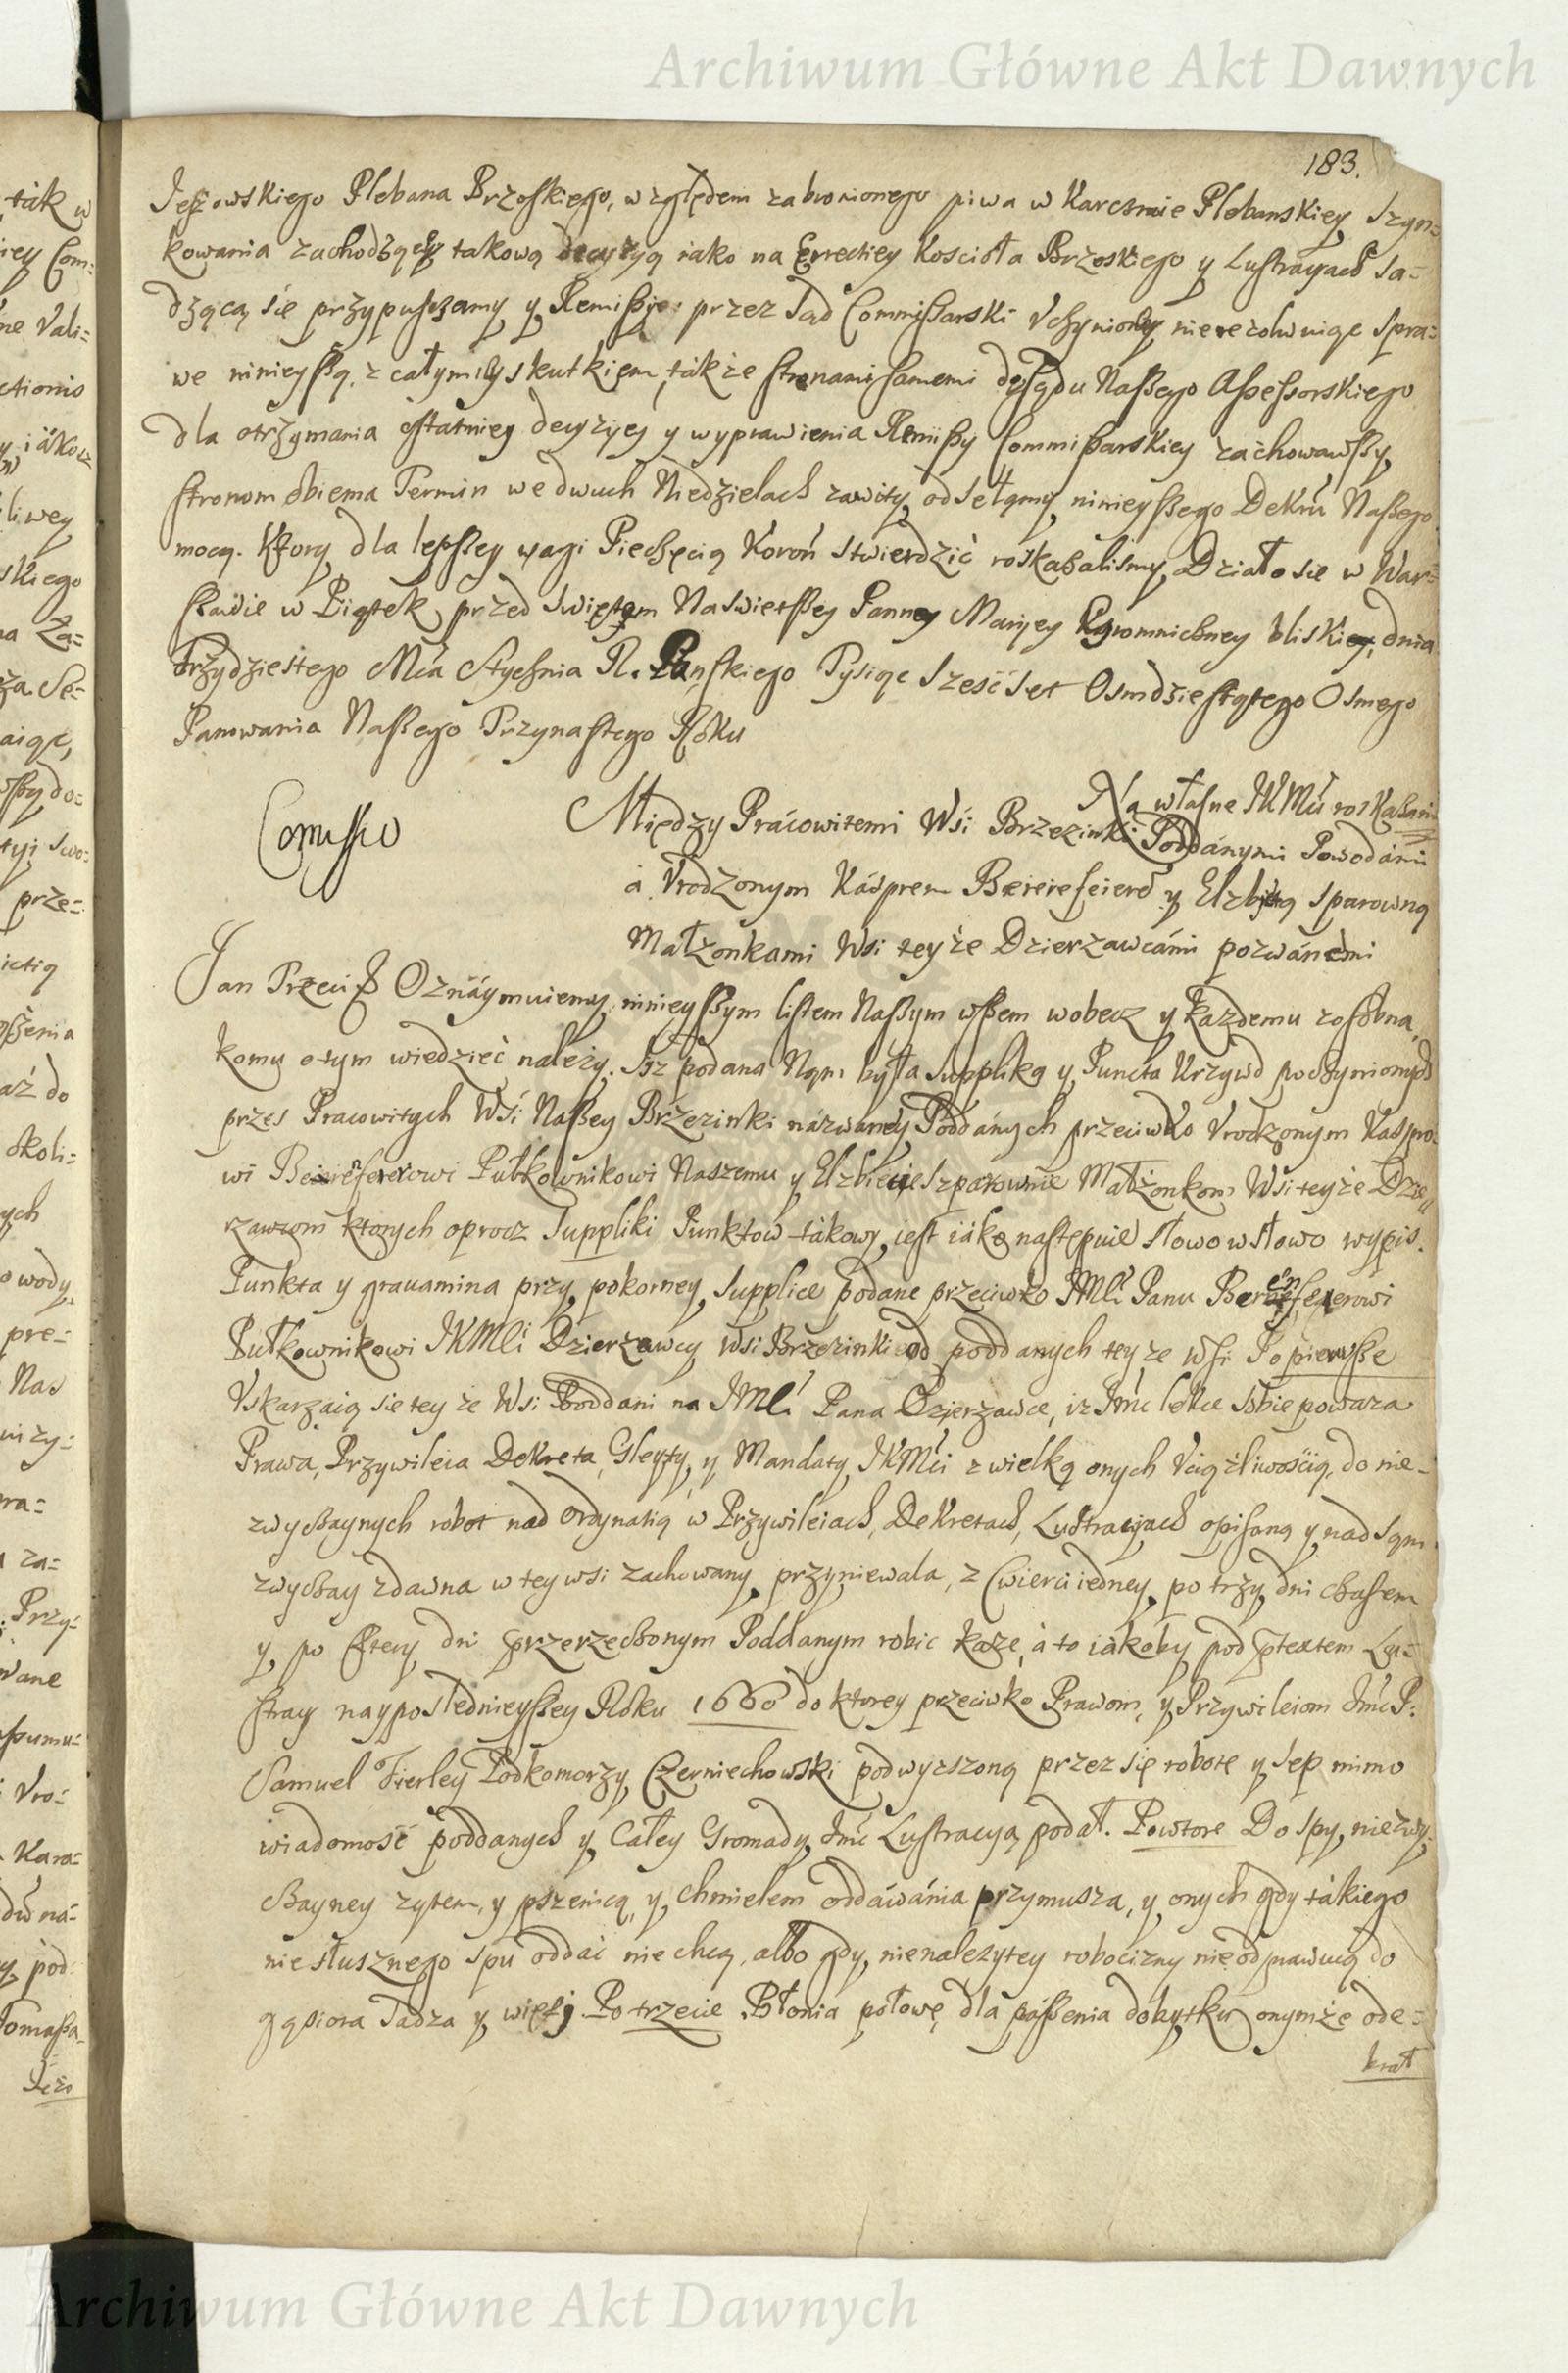 Archiwum Główne Akt Dawnych
183.
Jeżowskiego Plebana Brzoskiego, względem zabronionego piwa w Karczmie Plebanskiey Szyn=
kowania zachodzącey takową decyzyą iako na Erectiey Koscioła Brzoskiego y Lustracyach sa=
dzącą się przypuszczamy y Remissye przez Sąd Commissarski Vczyniony nierezolwuiąc spra=
we ninieyszą z całym iey skutkiem, także stronami samemi do Sądu Naszego Assessorskiego
dla otrzymania ostatniey decyzyey y wyprawienia Remissy Commissarskiey zachowawszy
stronom obiema Termin we dwuch Niedzielach zawity odsełamy ninieyszego Dekrtu Naszego
mocą. Ktory dla lepszey wagi Pieczęcią Koron stwierdzić roskazalismy Działo się w War=
szawie w Piątek przed Swiętem Naswietszey Panney Mariey Gromniczney bliskiey, dnia
trzydziestego Mca Stycznia R. Panskiego Tysiąc szescset Osmdziesiątego Osmego
Panowania Naszego Trzynastego Roku
Na własne JKMci roskazanie
Comissio
Między Prácowitemi Wsi Brzezinki Poddánymi Powodámi
á Vrodzonym Kásprem Beierefeiere y Elzbietą Sparowną
Małżonkami Wsi teyże Dzierzawcámi pozwánemi
Jan Trzeci &c Oznáymuiemy ninieyszym listem Naszym wszem wobecz y każdemu zosobna,
komu otym wiedzieć należy. Isz podana Nam była Supplika y Puncta Krzywd poczynionych
przes Pracowitych Wsi Naszey Brzezinki názwaney Poddánych przeciwko Vrodzonym Kaspro=
wi Beierefererowi Pułkownikowi Naszemu y Elzbiecie Szparownie Małżonkom Wsi teyże Dzie=
rzawcom ktorych oprocz Suppliki Punktow tákowy iest iáko nastepuie słowo w słowo wypis.
Punkta y grauamina przy pokorney Supplice podane przeciwko JMCi Panu Berenfeyerowi
Pułkownikowi JKMCi Dzierzawcy Wsi Brzezinki od poddanych teyże wsi Po pierwsze
Vskarzaią się teyże Wsi Poddani na JMCi Pana Dzierzawce, iz Jmc lekce sobie powaza
Prawa, Przywileia Dekreta, Gleyty, y Mandaty JKMCi z wielką onych Vciążliwoscią, do nie=
zwyczaynych robot nad Ordynatią w Przywileiach, Dekretach, Lustracyach opisaną y nad sąm
zwyczay zdawna w tey wsi zachowany przyniewala, z Cwierci iedney po trzy dni czasem
y po cztery dni przerzeczonym Poddanym robic kaze, á to iákoby pod ptextem Lu=
stracy naypoślednieyszey Roku 1660 do ktorey przeciwko Prawom, y Przywileiom Jmc P:
Samuel Fierley Podkomorzy Czerniechowski podwyzszoną przez się robote y sep mimo
wiadomość poddanych y Całey Gromady Jmc Lustracyą podał. Powtore Do spy niezwy=
czayney zytem, y pszenicą, y chmielem oddáwánia przymusza, y onych gdy tákiego
niesłusznego spu oddać nie chcą, albo gdy nienalezytey robocizny nie odprawuią do
gąsiora sadza y więzi. Po trzecie Błonia połowę, dla pászenia dobytku onymże ode=
brał
Archiwum Główne Akt Dawnych